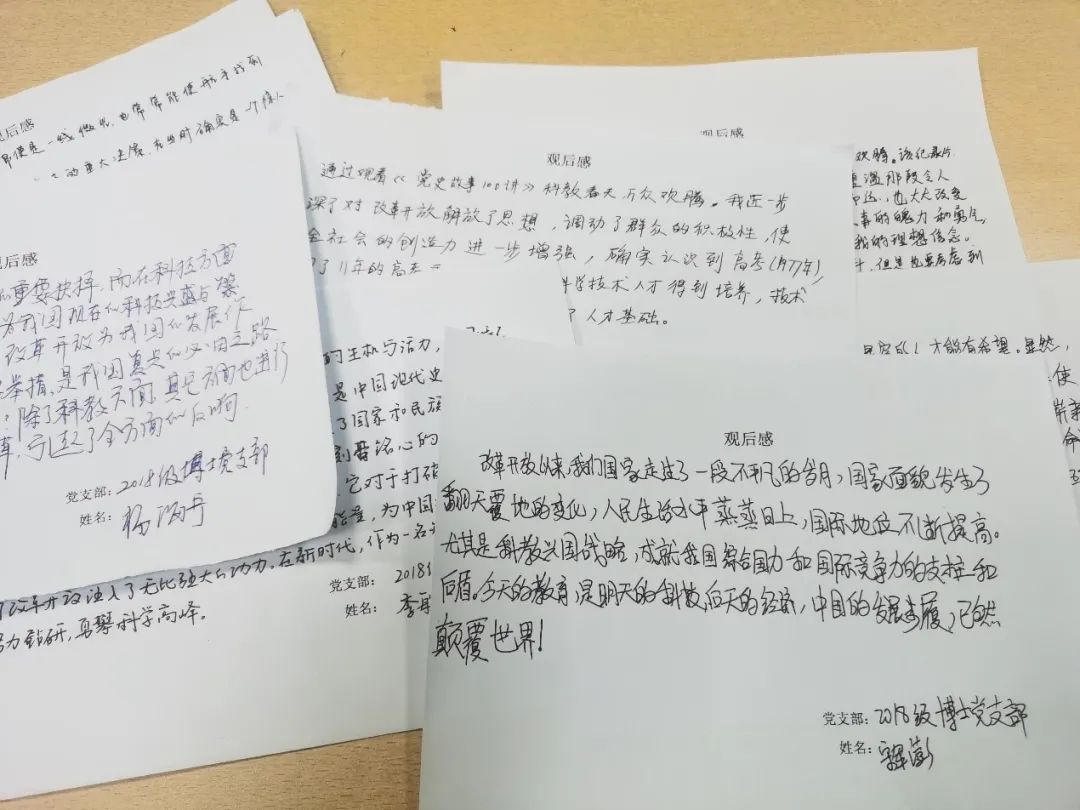 观后感
即便是一线微光,也常常能使航手找到
的重大决策,在当时确实是一个惊人
观后感
重要抉择,而在科技方面
为我国现在的科技兴盛与繁
改革开放为我国的发展作
举措,是我国复兴的必由之路
除了科教方面,其它方面也进行
引起了全方面的反响
党支部:2018级博士党支部
姓名:
的生机与活力,
是中国现代史
了国家和民族
刻骨铭心的
它对于打破
能量,为中国
改革开放注入了无比强大的动力。在新时代,作为一名
力钻研,勇攀科学高峰。
党支部:2018级
姓名:李
观后感
通过观看《党史故事100讲》科教春天 万众欢腾。我进一步
深了对改革开放解放了思想,调动了群众的积极性,使
全社会的创造力进一步增强,确实认识到高考(1977年),
了11年的高考
科学技术人才得到培养,技术
了人才基础。
观后感
欢腾。该纪录片
重温那段令人
命运,也大大改变
事的魄力和勇气
我的理想信念。
但是也要考虑到
才能有希望。显然,
使
新
命
观后感
改革开放以来,我们国家走过了一段不平凡的岁月,国家面貌发生了
翻天覆地的变化,人民生活水平蒸蒸日上,国际地位不断提高。
尤其是科教兴国战略,成就我国综合国力和国际竞争力的支柱和
后盾。今天的教育,是明天的科技,后天的经济,中国的发展步履,已然
颠覆世界!
党支部:2018级博士党支部
姓名: